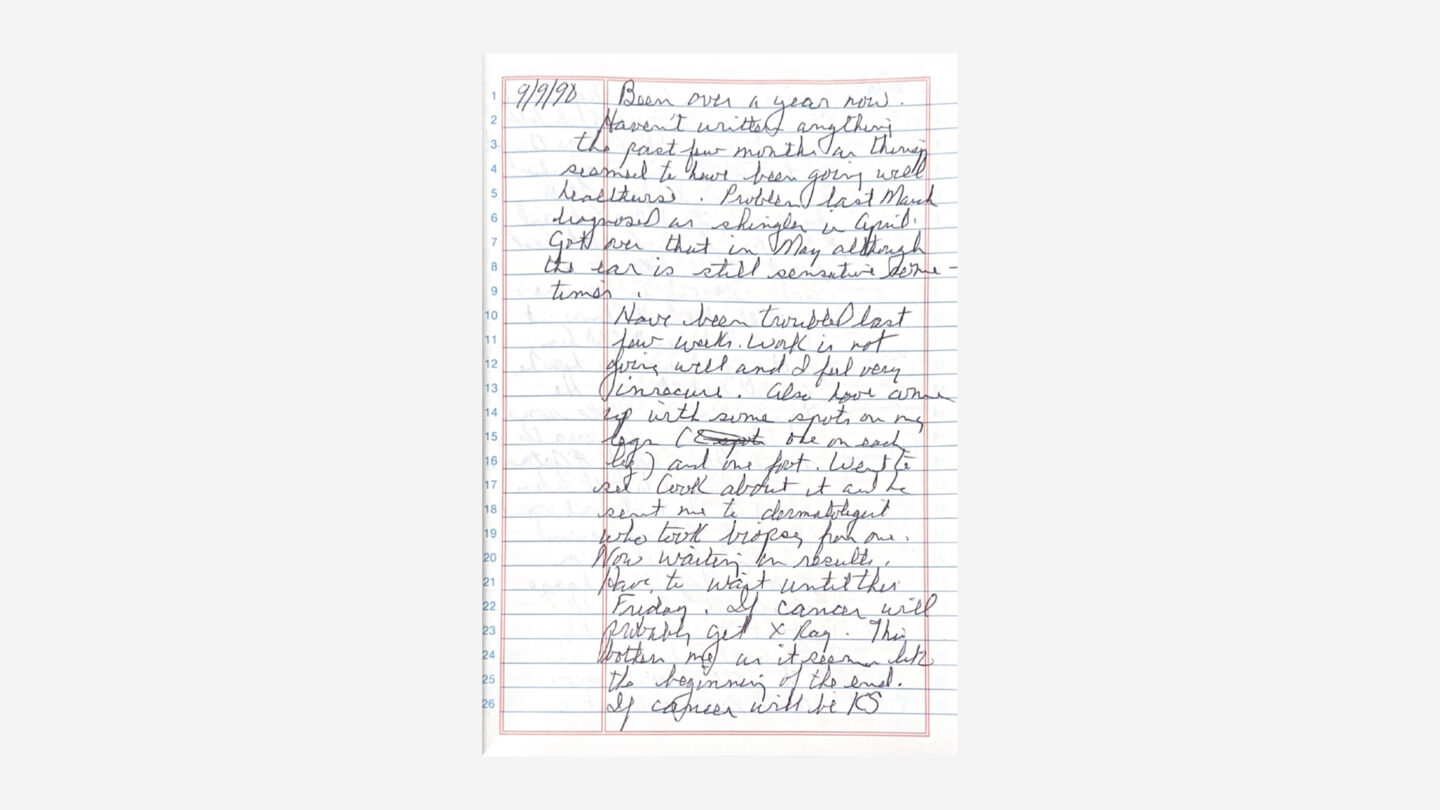 9/9/98 Been over a year now.
Haven't written anything
the past few months as things
seemed to have been going well
healthwise. Problem last March
diagnosed as shingles in April.
Got over that in May although
the ear is still sensative some-
times.
Have been troubled last
few weeks. Work is not
going well and I feel very
insecure. Also have come
up with some spots on my
legs ( one on each
leg) and one foot. Went to
see Cook about it and he
sent me to dermatologist
who took biopsy from one.
Now waiting on results.
Have to wait until this
Friday. If cancer will
probably get X Ray. This
bothers me as it seems like
the beginning of the end.
If cancer will be KS
1
2
3
4
5
6
7
8
9
10
11
12
13
14
15
16
17
18
19
20
21
22
23
24
25
26